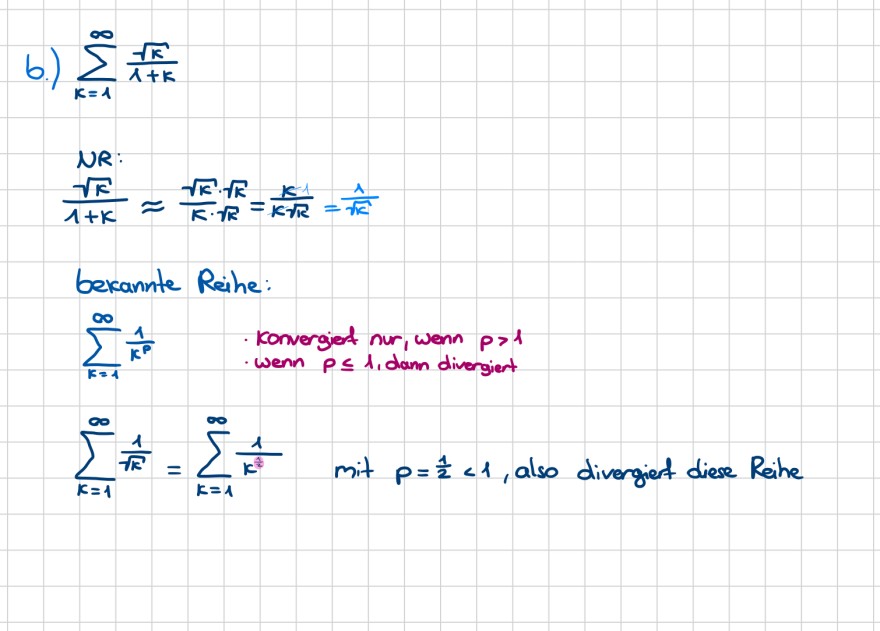 b.) ∑_{k=1}^{∞} √k / (1+k)
NR:
√k / (1+k) ≈ (√k · √k) / (k · √k) = k / (k√k) = 1 / √k
bekannte Reihe:
∑_{k=1}^{∞} 1 / k^p
· konvergiert nur, wenn p > 1
· wenn p ≤ 1, dann divergiert
∑_{k=1}^{∞} 1 / √k = ∑_{k=1}^{∞} 1 / k^{1/2} mit p = 1/2 < 1, also divergiert diese Reihe